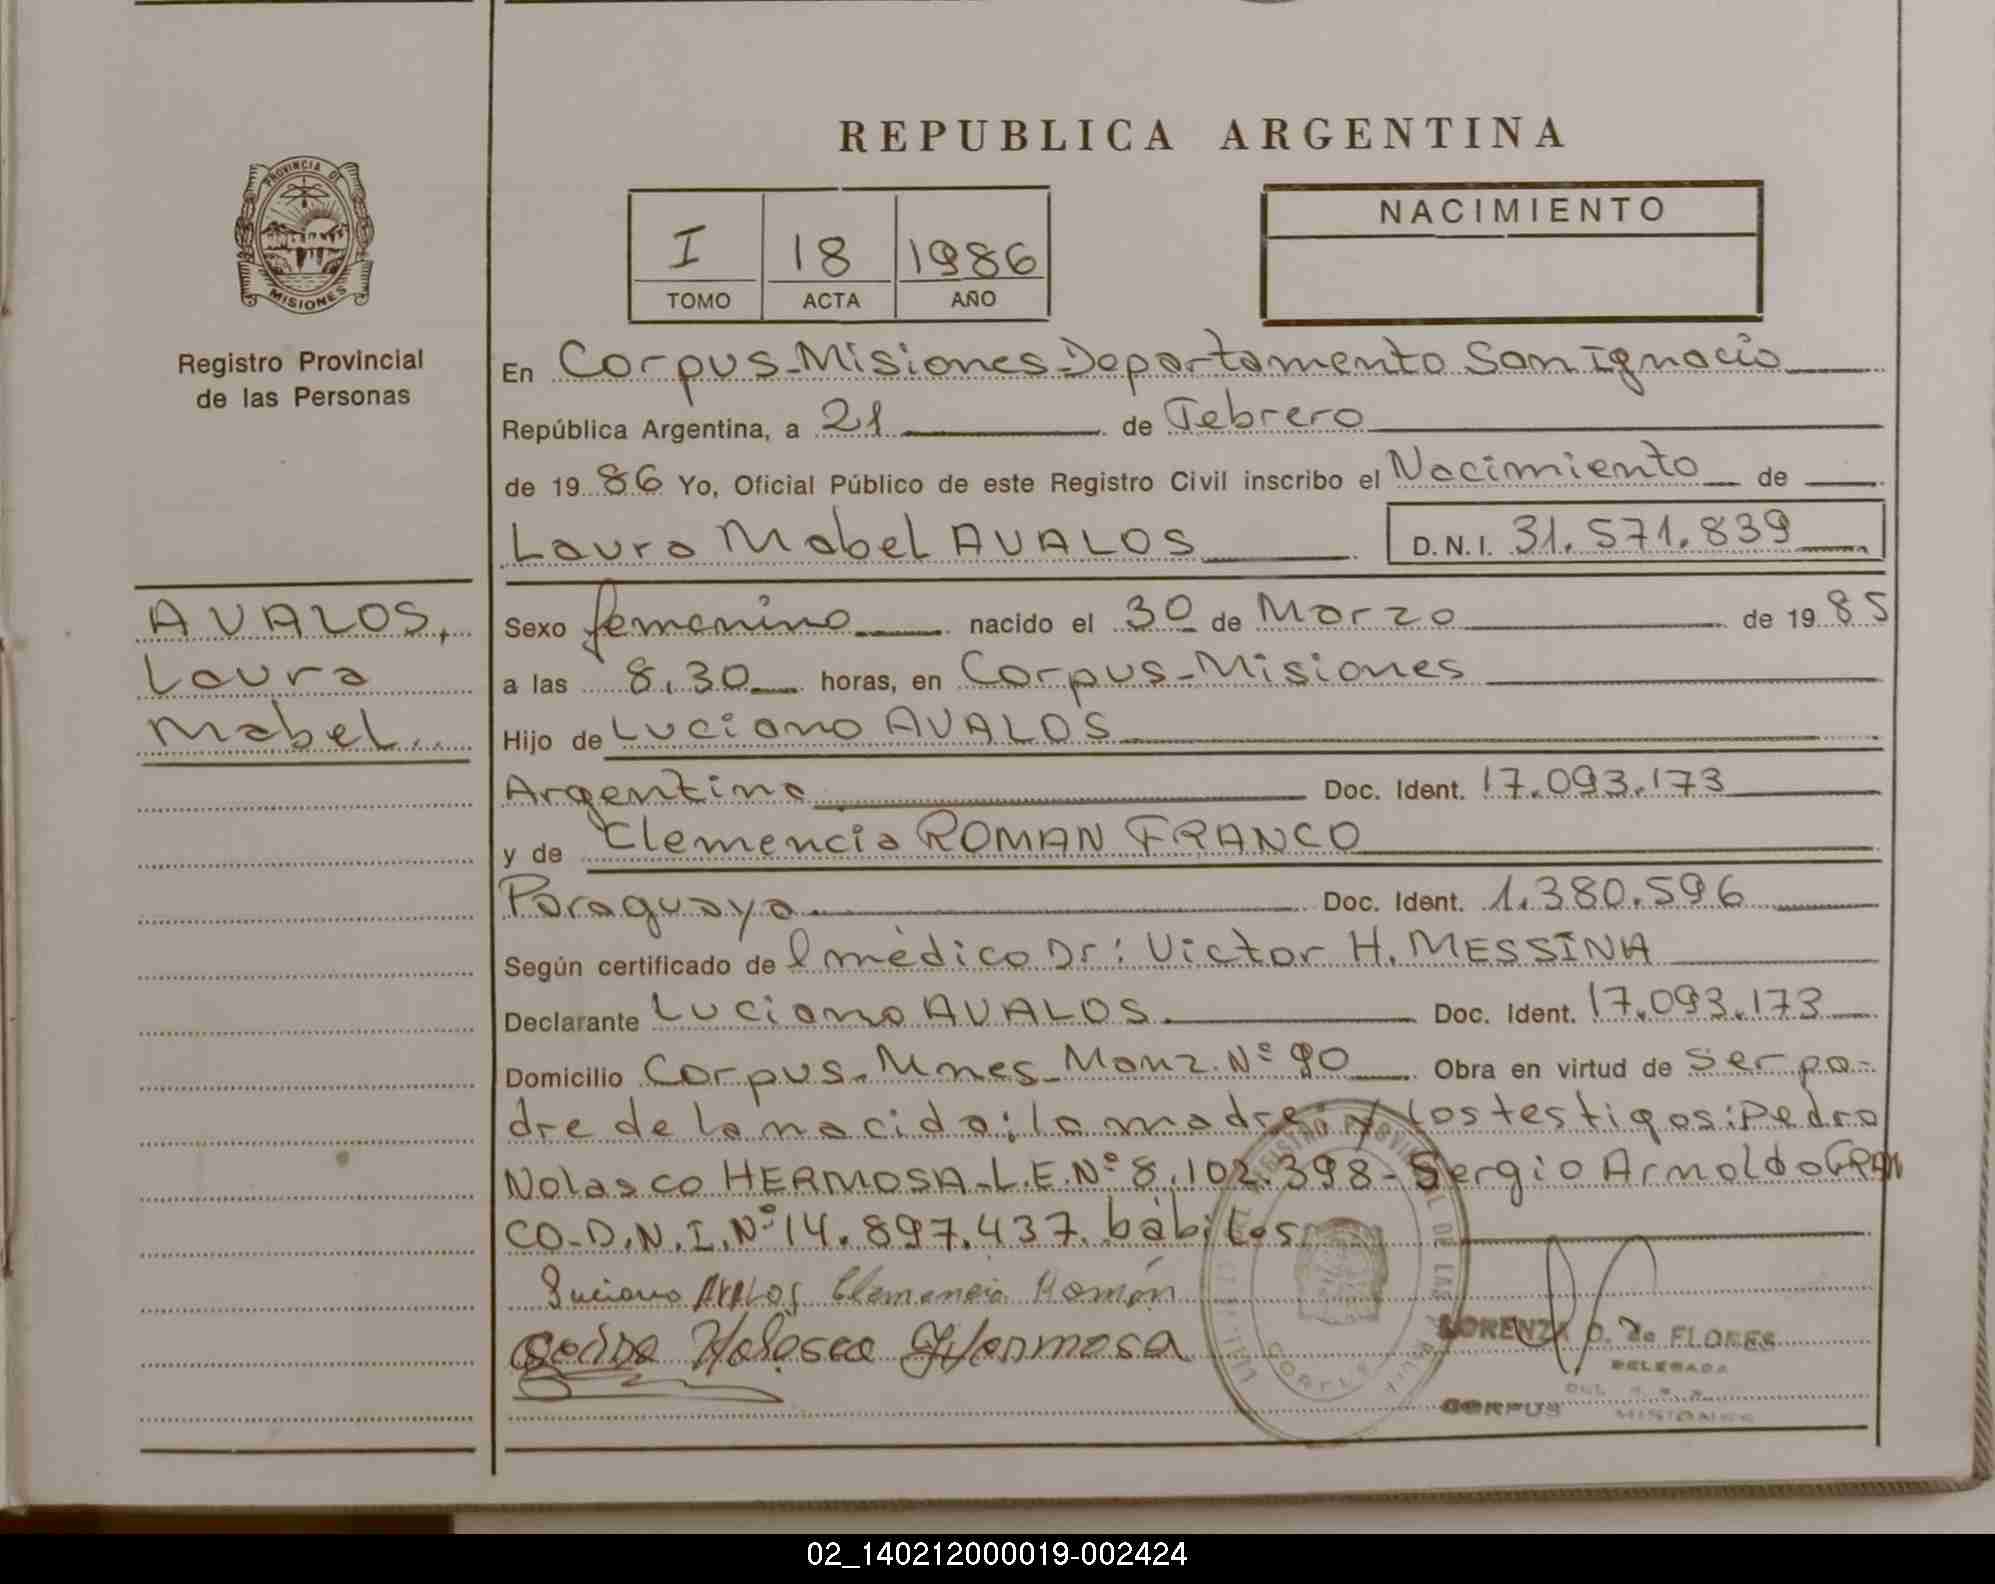 REPUBLICA ARGENTINA
PROVINCIA DE
MISIONES
Registro Provincial
de las Personas
I 18 1986
TOMO ACTA AÑO
NACIMIENTO
En Corpus-Misiones-Departamento San Ignacio
República Argentina, a 21 de Febrero
de 1986 Yo, Oficial Público de este Registro Civil inscribo el Nacimiento de
Laura Mabel AVALOS D.N.I. 31.571.839
AVALOS,
Laura
Mabel..
Sexo femenino nacido el 30 de Marzo de 1985
a las 8,30 horas, en Corpus-Misiones
Hijo de Luciano AVALOS
Argentino Doc. Ident. 17.093.173
y de Clemencia ROMAN FRANCO
Paraguaya Doc. Ident. 1.380.596
Según certificado del médico Dr: Victor H. MESSINA
Declarante Luciano AVALOS Doc. Ident. 17.093.173
Domicilio Corpus-Mnes-Manz. Nº 90 Obra en virtud de Ser pa-
dre de la nacida; la madre; y los testigos: Pedro
Nolasco HERMOSA-L.E.Nº 8.102.398-Sergio Arnoldo FRAN
CO-D.N.I.Nº 14.897.437. hábiles
Luciano AVALOS Clemencia Román
Pedro Nolasco Hermosa
LORENZA D. de FLORES
DELEGADA
CORPUS MISIONES
02_140212000019-002424